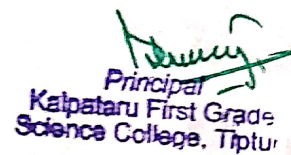 Principal
Kalpataru First Grade
Science College, Tiptur